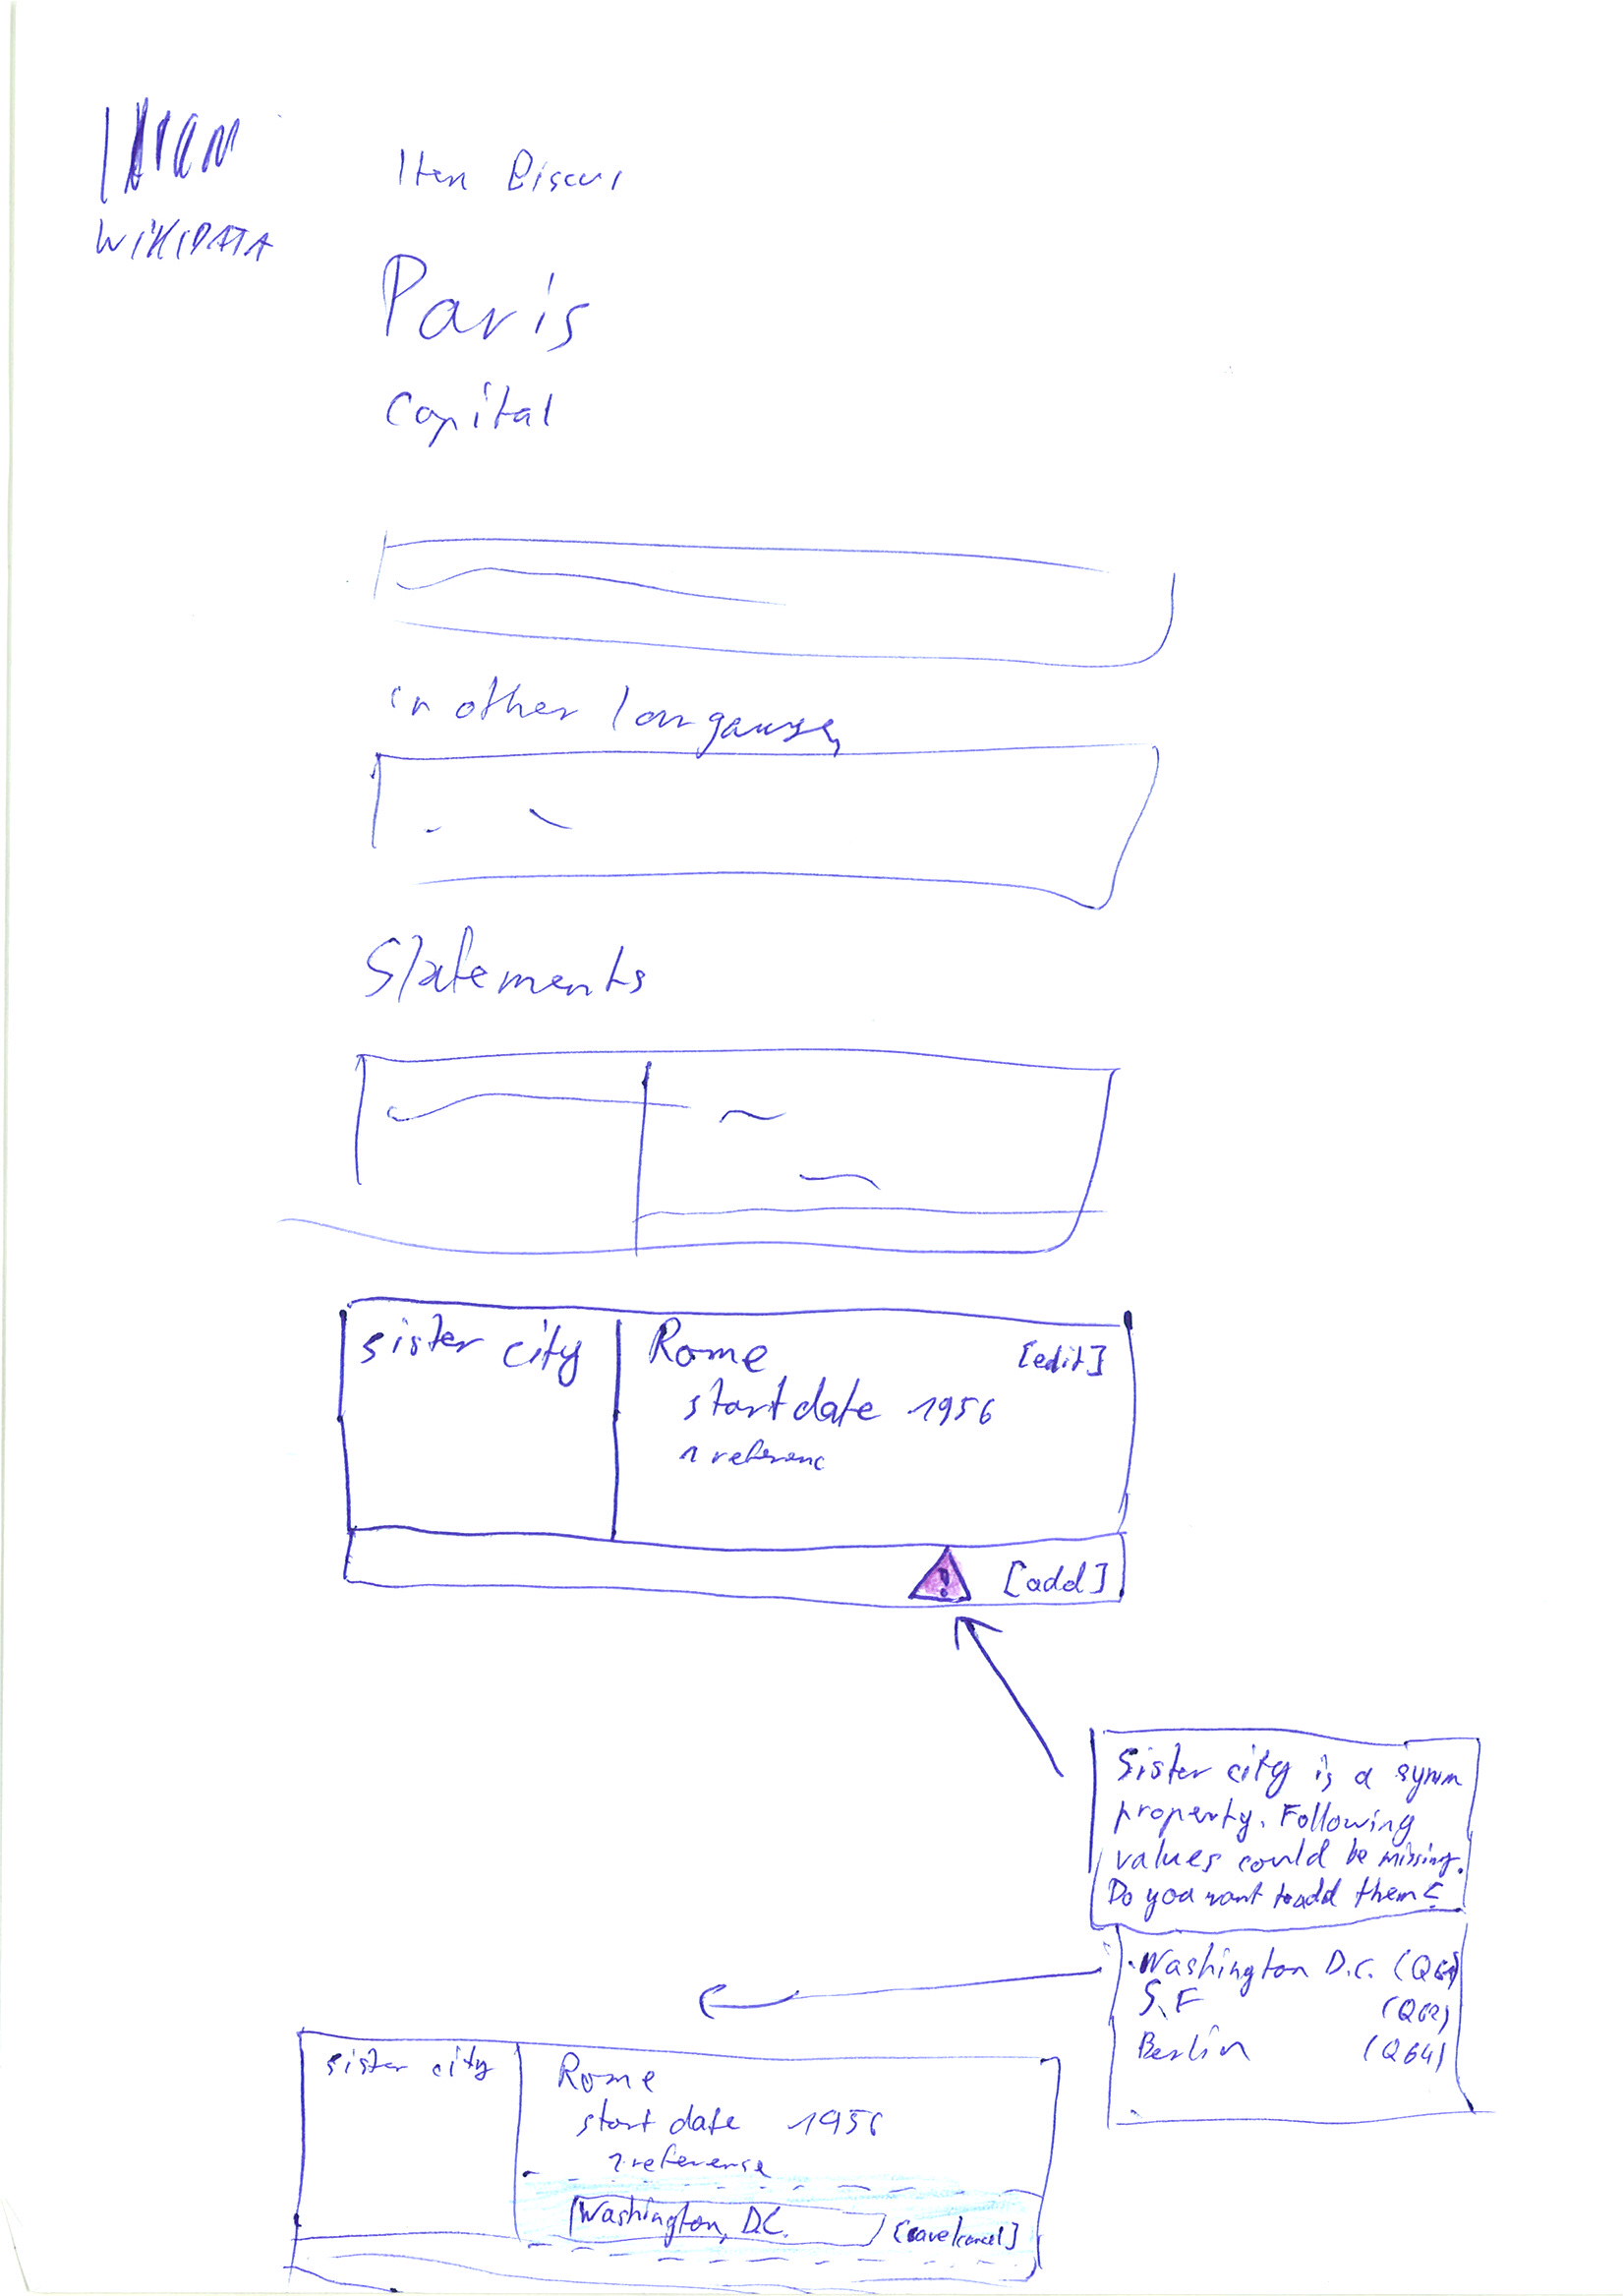 WIKIDATA
Item Discus
Paris
Capital
in other
Statements
sister city
Rome
[edit]
start date 1956
1 referenc
!
[add]
Sister city is a symm
property. Following
values could be missing.
Do you want to add them?
Washington D.C. (Q61)
S.F (Q62)
Berlin (Q64)
sister city
Rome
start date 1956
1 reference
Washington, D.C.
[save/cancel]